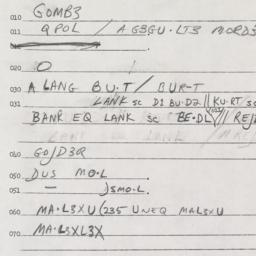 010 GOMB3
011 QPOL / AG3GU·LT3 MORD3
020 O
030 A LANG BU·T / BUR-T
031 LANK sc D1 BU·D2 || KU·RT sc
BANK EQ LANK sc BE·DL
040 GOJD3R
050 DUS MO·L
051 — JSMO·L.
060 MA·L3XU (235 UNEQ MAL3XU
070 MA·L3XL3X